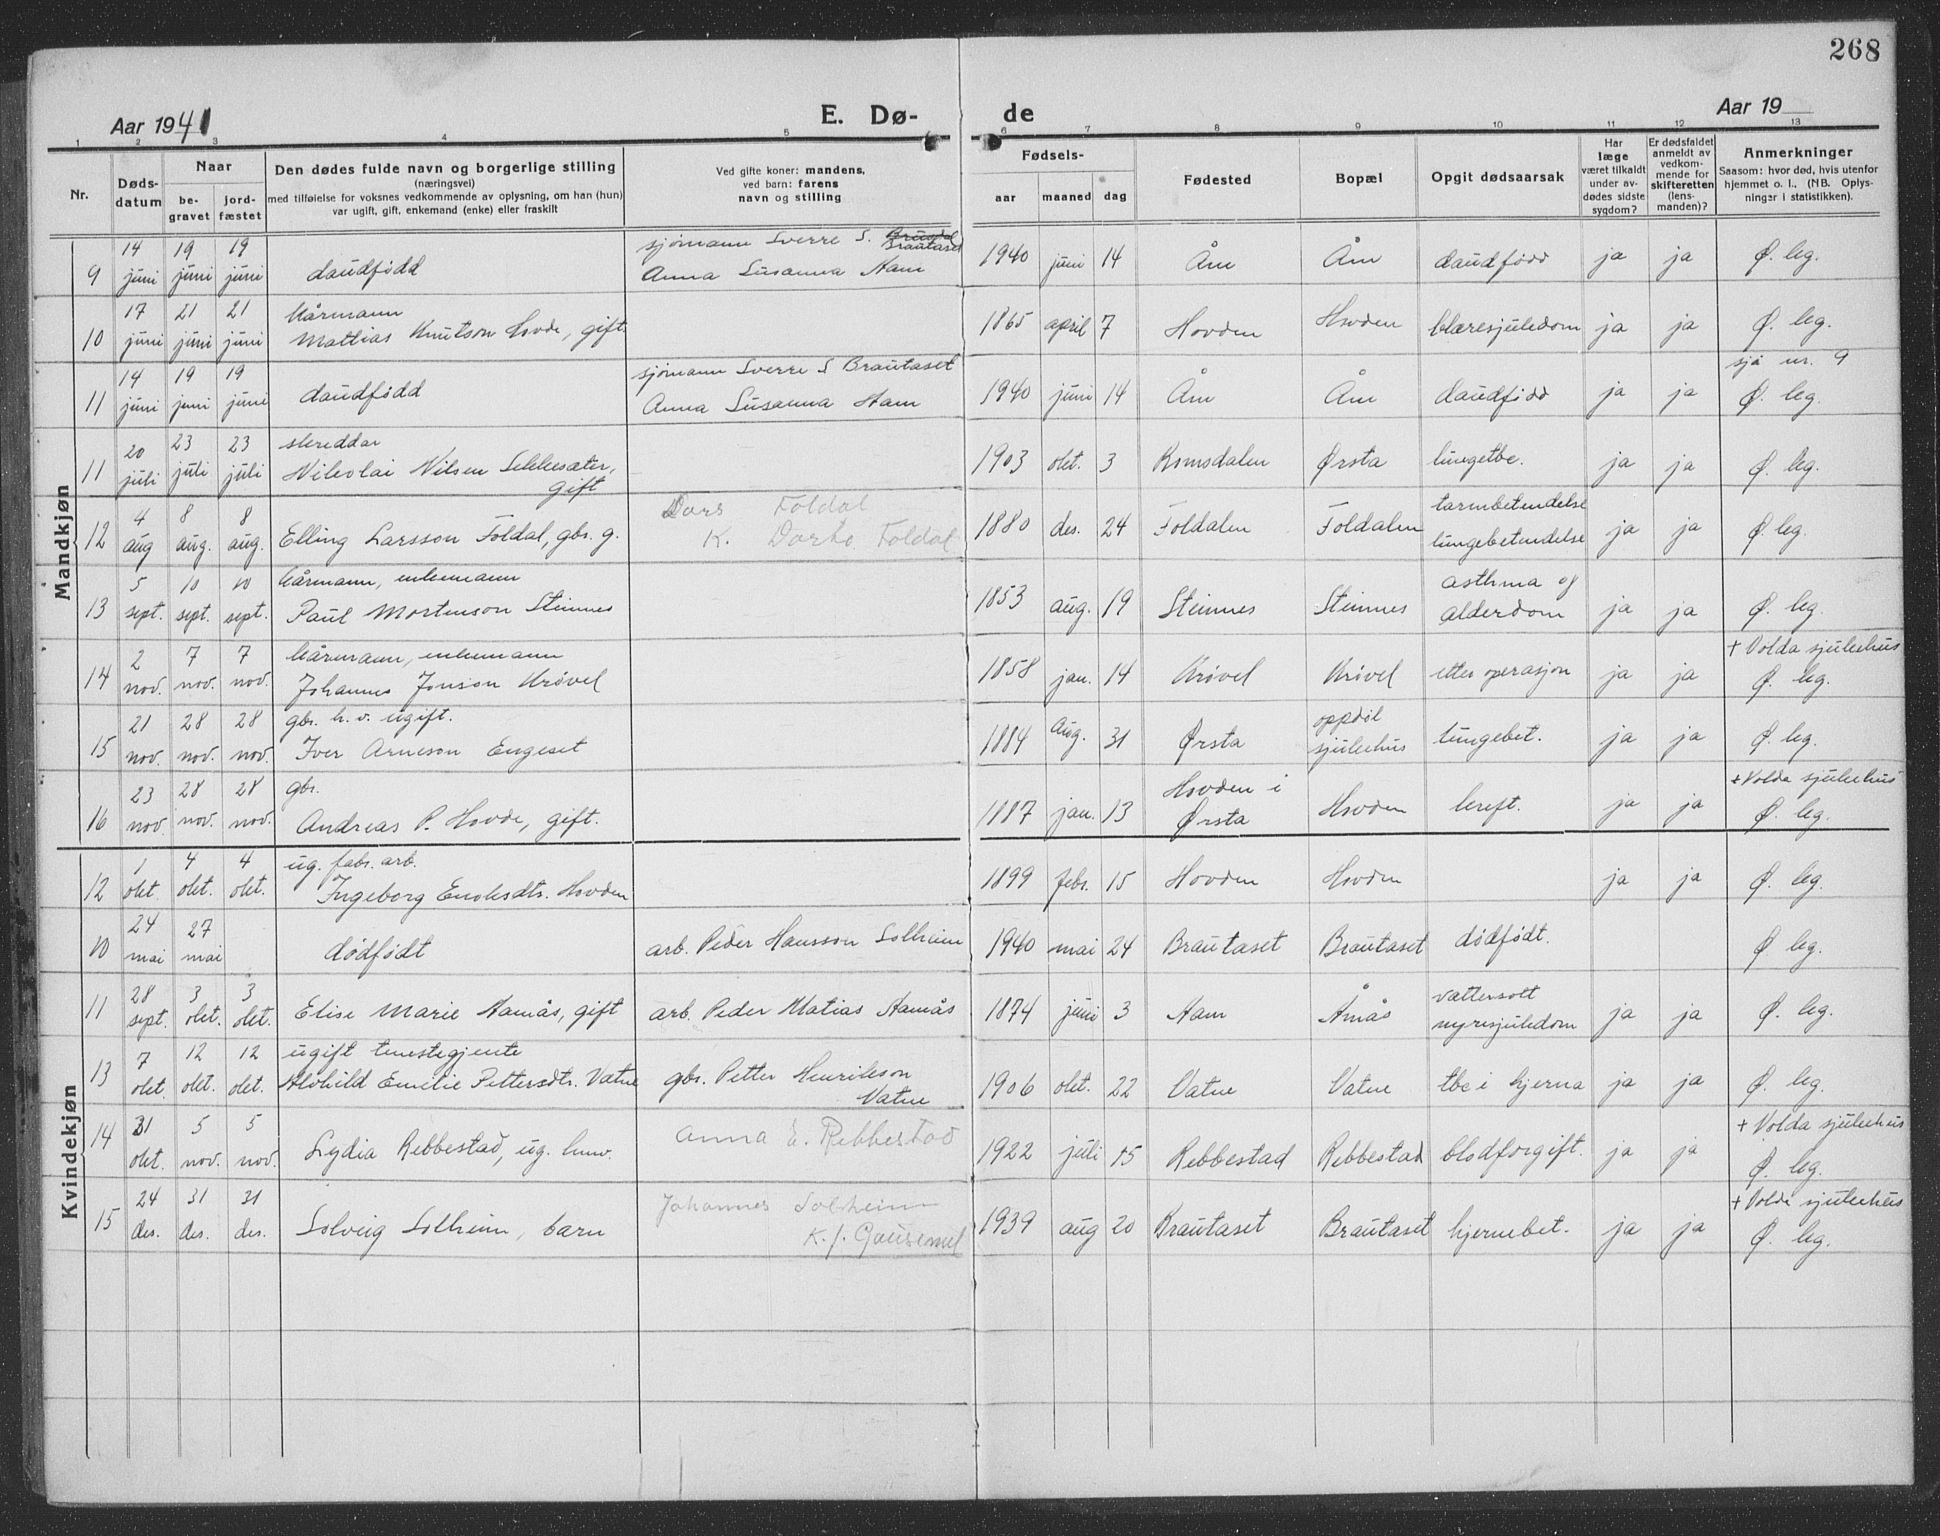 268
Aar 1941
E. Dø-
de
Aar 19
1 2 3 4 5 6 7 8 9 10 11 12 13
Nr.
Døds-
datum
Naar
be-
gravet
jord-
fæstet
Den dødes fulde navn og borgerlige stilling
(næringsvei)
med tilføielse for voksnes vedkommende av oplysning, om han (hun)
var ugift, gift, enkemand (enke) eller fraskilt
Ved gifte koner: mandens,
ved barn: farens
navn og stilling
Fødsels-
aar
maaned
dag
Fødested
Bopæl
Opgit dødsaarsak
Har
læge
været tilkaldt
under av-
dødes sidste
sygdom?
Er dødsfaldet
anmeldt av
vedkom-
mende for
skifteretten
(lens-
manden)?
Anmerkninger
Saasom: hvor død, hvis utenfor
hjemmet o. l., (NB. Oplys-
ninger i statistikken).
Mandkjøn
14 19 19 sjømann Sverre S. Brautaset
9 juni juni juni daudfødd Anna Susanna Aam 1940 juni 14 Åm Åm daudfødd ja ja Ø. leg.
17 21 21 kårmann
10 juni juni juni Mattias Knutson Hovde, gift 1865 april 7 Hovden Hovden blæresjukedom ja ja Ø. leg.
14 19 19 sjømann Sverre S Brautaset sjå nr. 9
11 juni juni juni daudfødd Anna Susanna Aam 1940 juni 14 Åm Åm daudfødd ja ja Ø. leg.
20 23 23 skreddar
11 juli juli juli Nikolai Nilsen Sekkesæter, 1903 okt. 3 Romsdalen Ørsta lungetbc. ja ja Ø. leg.
gift
4 8 8 Lars Foldal tarmbetendelse
12 aug aug. aug. Elling Larsson Foldal, gbr. g. K. Dorte Foldal 1880 des. 24 Foldalen Foldalen lungebetendelse ja ja Ø. leg.
5 10 10 kårmann, enkemann asthma og
13 sept. sept. sept. Paul Mortenson Steinnes 1853 aug. 19 Steinnes Steinnes alderdom ja ja Ø. leg.
2 7 7 kårmann, enkemann + Volda sjukehus
14 nov. nov. nov. Johannes Jonson Krøvel 1858 jan. 14 Krøvel Krøvel etter operasjon ja ja Ø. leg.
21 28 28 gbr. h. v. ugift. oppdøl
15 nov. nov. nov. Iver Arneson Engeset 1884 Aug. 31 Ørsta sjukehus lungebet. ja ja Ø. leg.
23 28 28 gbr. Hovden i + Volda sjukehus
16 nov. nov. nov. Andreas P. Hovde, gift. 1887 jan. 13 Ørsta Hovden kreft. ja ja Ø. leg.
Kvindekjøn
1 4 4 ug. fabr. arb.
12 okt okt. okt. Ingeborg Enoksdtr. Hovden 1899 febr. 15 Hovden Hovden ja ja Ø. leg.
24 27
10 mai mai dødfødt arb. Peder Hansson Solheim 1940 mai 24 Brautaset Brautaset dødfødt. Ø leg.
28 3 3 vattersott
11 sept. okt. okt. Elise Marie Aamås, gift arb. Peder Matias Aamås 1874 juni 3 Aam Åmås nyresjukedom ja ja Ø. leg.
7 12 12 ugift tenestegjente
13 okt okt. okt. Alvhild Emilie Pettersdtr. Vatne gbr. Petter Henrikson 1906 okt. 22 Vatne Vatne tbc i hjerna ja ja Ø. leg.
Vatne
31 5 5 + Volda sjukehus
14 okt. nov. nov. Lydia Rebbestad, ug. husv. Anna E. Rebbestad 1922 juli 15 Rebbestad Rebbestad blodforgift. ja ja Ø. leg.
24 31 31 Johannes Solheim + Volda sjukehus
15 des. des. des. Solveig Solheim, barn K. f. Gausemel 1939 aug 20 Brautaset Brautaset hjernebet. ja ja Ø. leg.